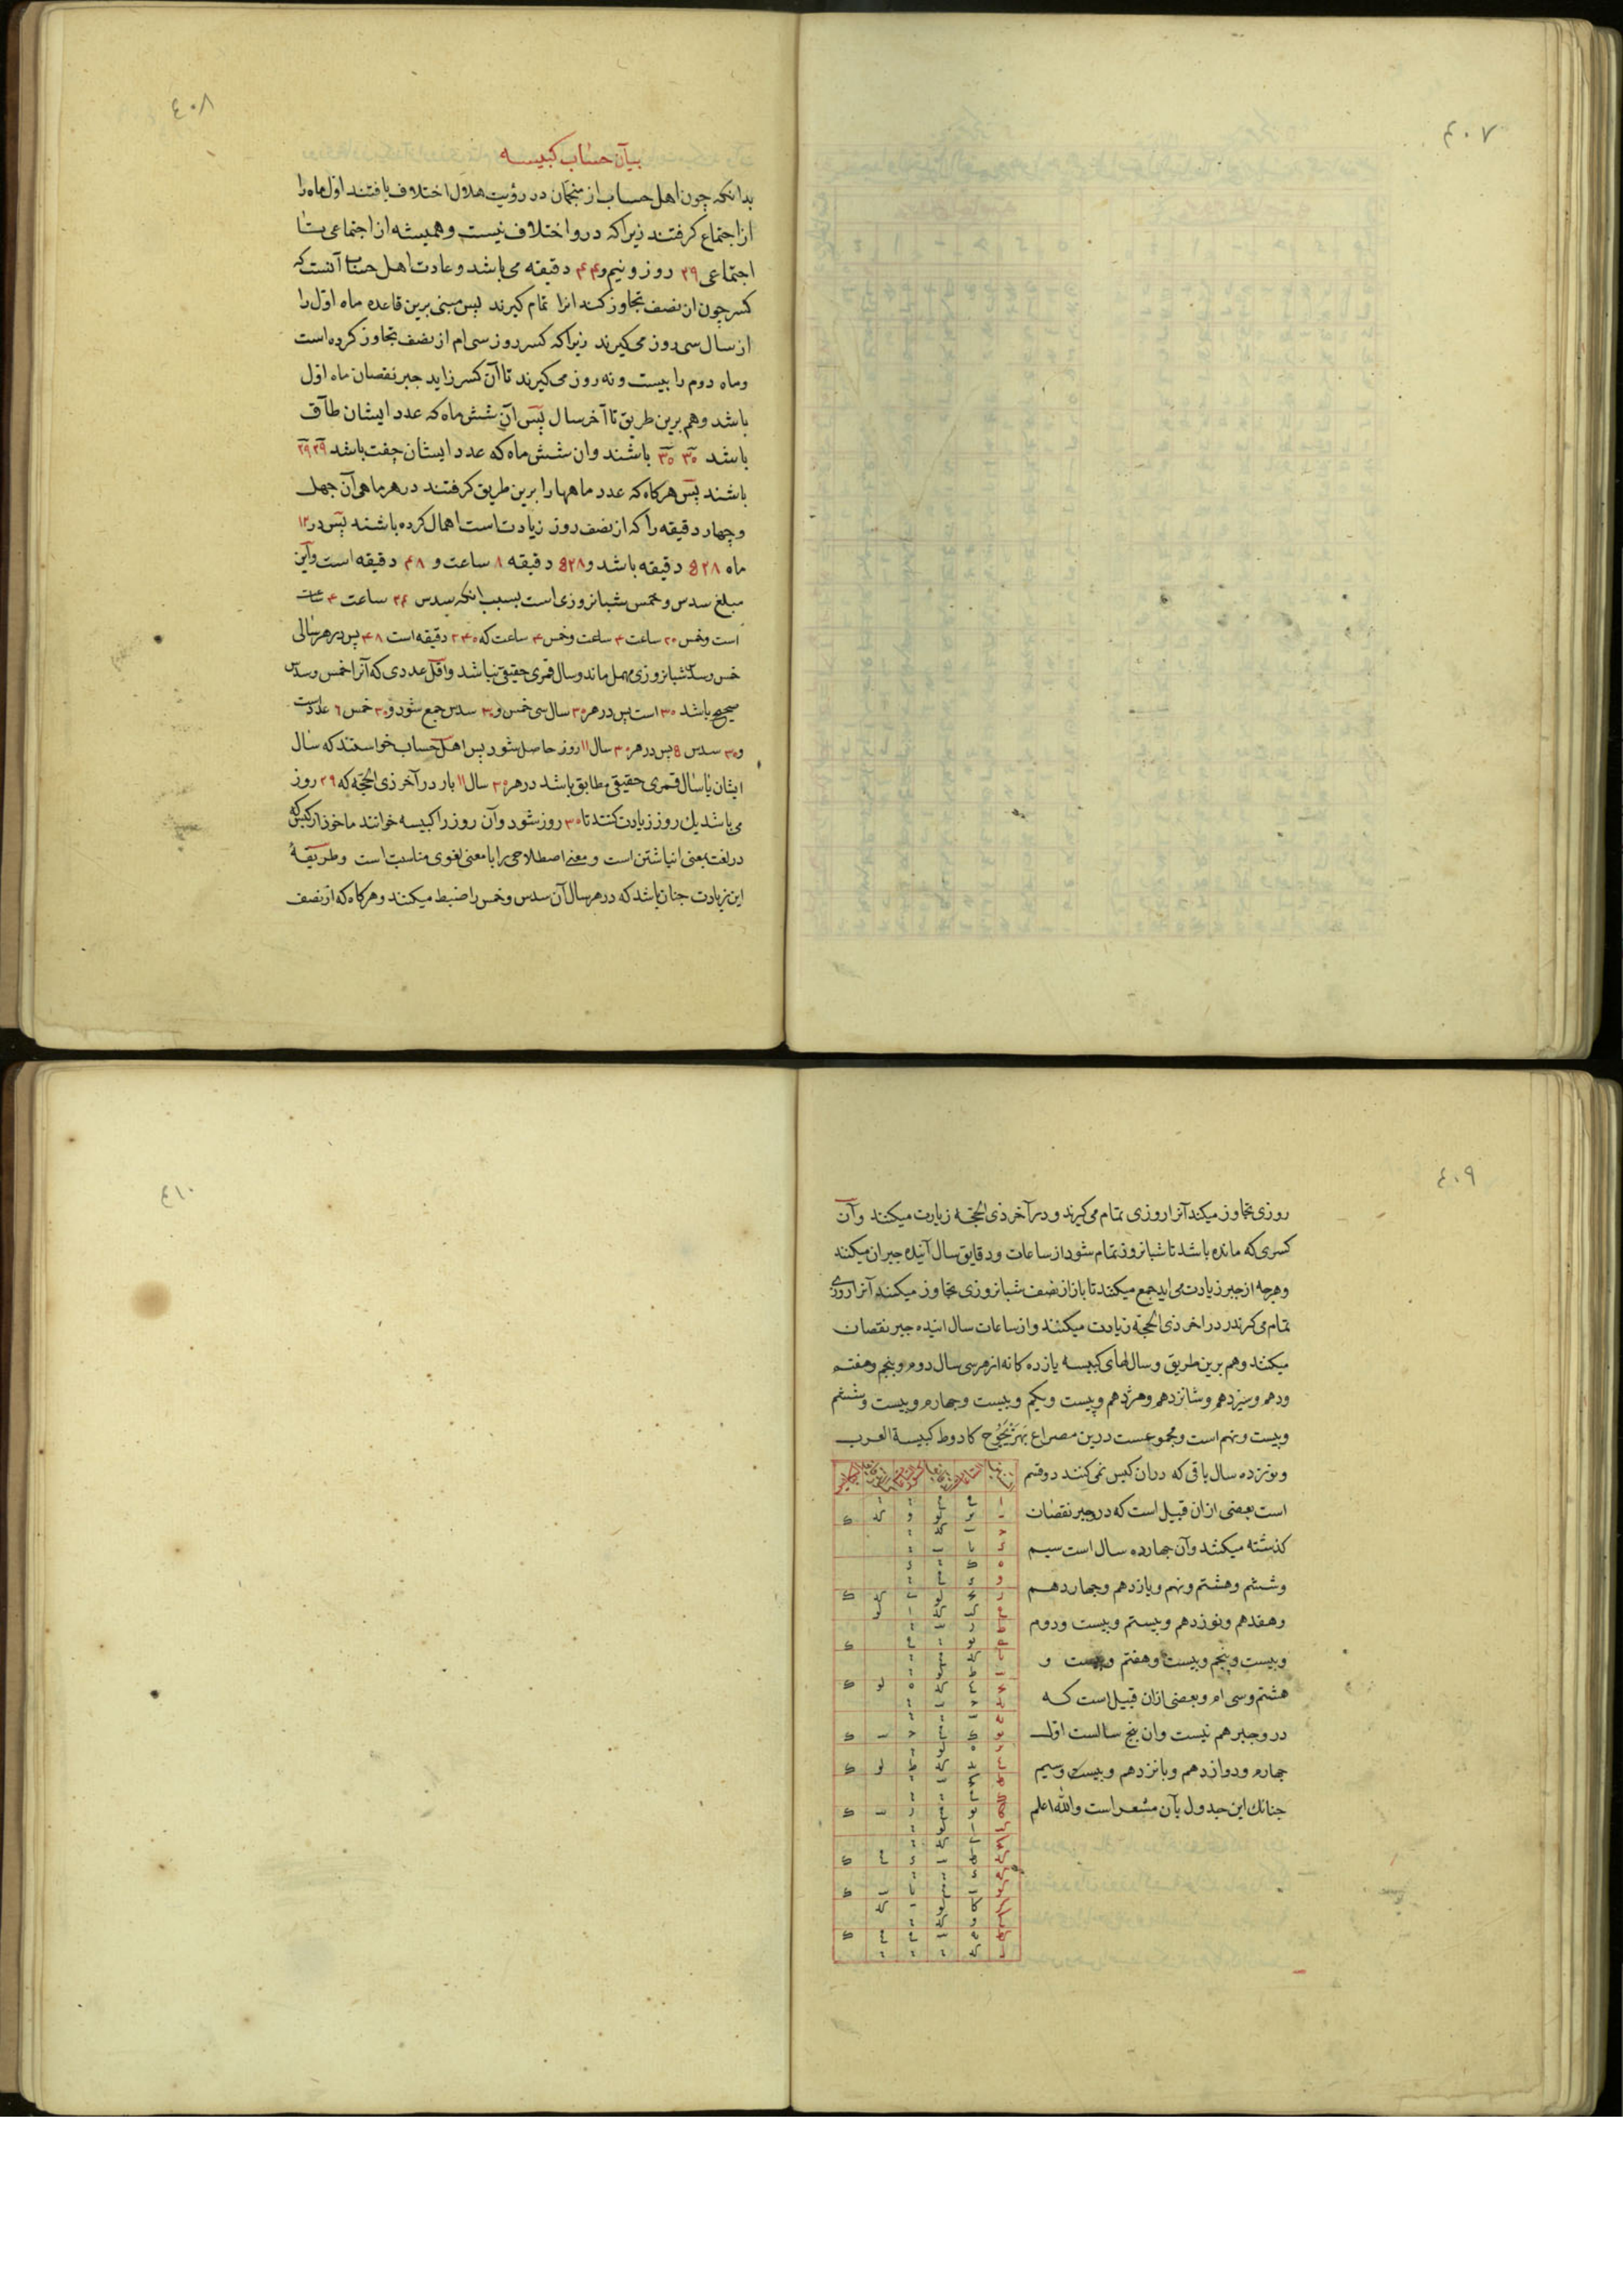 ٤٠٧
٤٠٨
بیان حساب کبیسه
بدانکه چون اهل حساب از منجمان در رؤیت هلال اختلاف یافتند اول ماه را
از اجتماع گرفتند زیرا که درو اختلاف نیست و همیشه از اجتماعی تا
اجتماعی ۲۹ روز و نیم و ۴۴ دقیقه می باشد و عادت اهل حساب آنست که
کسر چون از نصف تجاوز کند انرا تمام گیرند پس مبنی برین قاعده ماه اول را
از سال سی روز می گیرند زیرا که کسر روز سی ام از نصف تجاوز کرده است
و ماه دوم را بیست و نه روز می گیرند تا آن کسر زاید جبر نقصان ماه اول
باشد و هم برین طریق تا آخر سال پس آن شش ماه که عدد ایشان طاق
باشد ۳۰ ۳۰ باشند و ان شش ماه که عدد ایشان جفت باشد ۲۹ ۲۹
باشند پس هرگاه که عدد ماهها را برین طریق گرفتند در هر ماهی آن چهل
و چهار دقیقه را که از نصف روز زیادت است اهمال کرده باشند پس در ۱۲
ماه ۵۲۸ دقیقه باشد و ۵۲۸ دقیقه ۸ ساعت و ۴۸ دقیقه است و این
مبلغ سدس و خمس شبانروزی است بسبب انکه سدس ۲۴ ساعت ۴ ساعت
است و خمس ۲۰ ساعت ۴ ساعت و خمس ۴ ساعت که ۲۴۰ دقیقه است ۴۸ پس در هر سالی
خمس و سدس شبانروزی مهمل ماند و سال قمری حقیقی نباشد و اقل عددی که آنرا خمس و سدس
صحیح باشد ۳۰ است پس در هر ۳۰ سال سی خمس و ۳۰ سدس جمع شود و ۳۰ خمس ۶ عدد است
و ۳۰ سدس ۵ پس در هر ۳۰ سال ۱۱ روز حاصل شود پس اهل حساب خواستند که سال
ایشان با سال قمری حقیقی مطابق باشد در هر ۳۰ سال ۱۱ بار در آخر ذی الحجه که ۲۹ روز
می باشد یک روز زیادت کنند تا ۳۰ روز شود و آن روز را کبیسه خوانند ماخوذ از کبس که
در لغت بمعنی انباشتن است و معنی اصطلاحی را با معنی لغوی مناسبت است و طریقهٔ
این زیادت چنان باشد که در هر سال آن سدس و خمس را ضبط میکنند و هرگاه که از نصف
٤٠٩
روزی تجاوز میکند آنرا روزی تمام می گیرند و در آخر ذی الحجه زیادت میکنند و آن
کسری که مانده باشد تا شبانروز تمام شود از ساعات و دقایق سال آینده جبران میکنند
و هرچه از جبر زیادت می اید جمع میکنند تا باز از نصف شبانروزی تجاوز میکند آنرا روزی
تمام می گیرند در اخر ذی الحجه زیادت میکنند و از ساعات سال اینده جبر نقصان
میکنند و هم برین طریق و سالهای کبیسه یازده کانه از هر سی سال دوم و پنجم و هفتم
و دهم و سیزدهم و شانزدهم و هژدهم و بیست و یکم و بیست و چهارم و بیست و ششم
و بیست و نهم است و مجموعست درین مصراع بهزیجوح کادوط کبیسة العرب
و نوزده سال باقی که دران کبس نمی کنند دو قسم
است بعضی ازان قبیل است که در جبر نقصان
گذشته میکشد و آن چهارده سال است سیم
و ششم و هشتم و نهم و یازدهم و چهاردهم
و هفدهم و نوزدهم و بیستم و بیست و دوم
و بیست و پنجم و بیست و هفتم و بیست و
هشتم و سی ام و بعضی ازان قبیل است که
درو جبر هم نیست و ان پنج سالست اول
چهارم و دوازدهم و پانزدهم و بیست و سیم
چنانک این جدول بآن مشعر است و الله اعلم
٤١٠